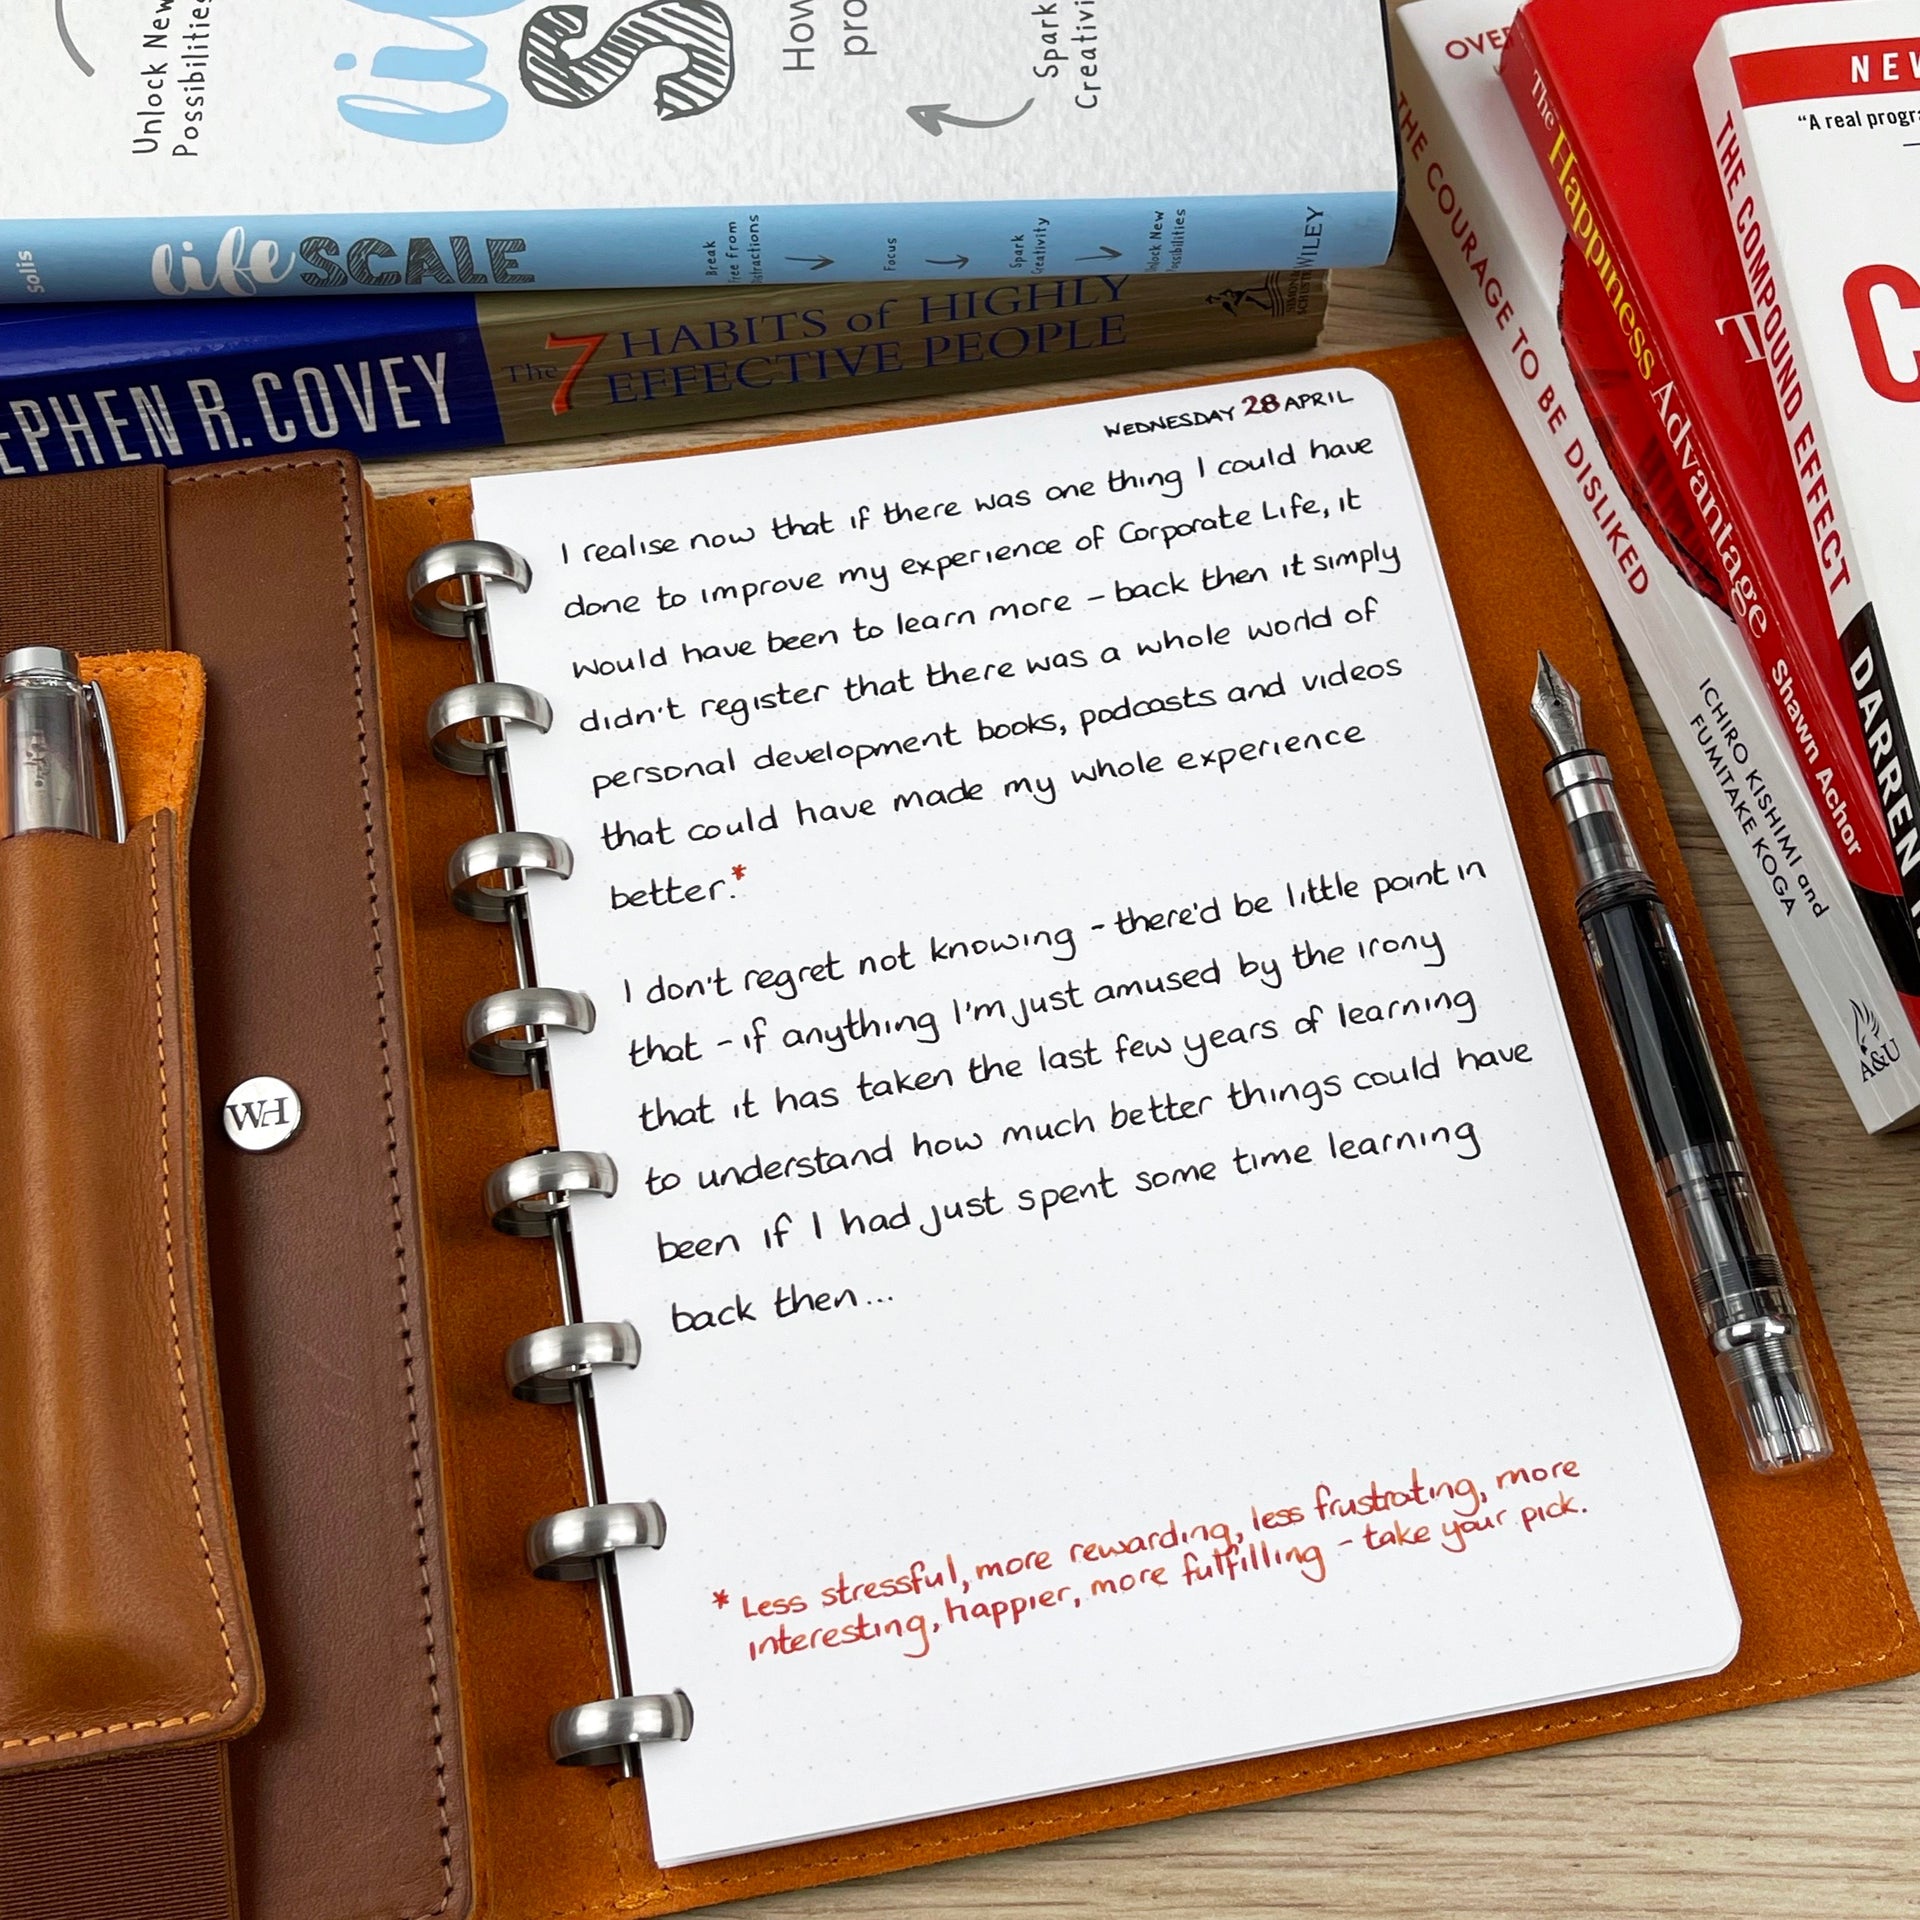 Unlock New
Possibilities
life
S
How
pro
Spark
Creativi
solis
lifeSCALE
Break
Free from
Distractions
Focus
Spark
Creativity
Unlock New
Possibilities
WILEY
EPHEN R. COVEY
The 7 HABITS of HIGHLY
EFFECTIVE PEOPLE
SIMON &
SCHUSTER
OVER
THE COURAGE TO BE DISLIKED
ICHIRO KISHIMI and
FUMITAKE KOGA
A&U
The Happiness Advantage
Shawn Achor
T
NEW
"A real progra
C
THE COMPOUND EFFECT
DARREN
WH
WEDNESDAY 28 APRIL
I realise now that if there was one thing I could have
done to improve my experience of Corporate Life, it
would have been to learn more – back then it simply
didn't register that there was a whole world of
personal development books, podcasts and videos
that could have made my whole experience
better.*
I don't regret not knowing - there'd be little point in
that - if anything I'm just amused by the irony
that it has taken the last few years of learning
to understand how much better things could have
been if I had just spent some time learning
back then...
* Less stressful, more rewarding, less frustrating, more
interesting, happier, more fulfilling - take your pick.